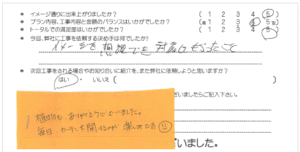 ● イメージ通りに出来上がりましたか? ( 1 2 3 4 5 )
● プラン内容、工事内容と金額のバランスはいかがでしたか? ( 1 2 3 4 5 )
● トータルでの満足度はいかがでしたか? ( 1 2 3 4 5 )
● 今回、弊社に工事を依頼する決めては何でしたか?
イメージを
対応
こと
次回工事をされる場合やお知り合いに紹介を、また弊社に依頼しようと思いますか?
( はい ・ いいえ )
ございましたらご記入下さい。
ありがとうございました。
毎日、カーテンを開けるのが楽しみです
いました。